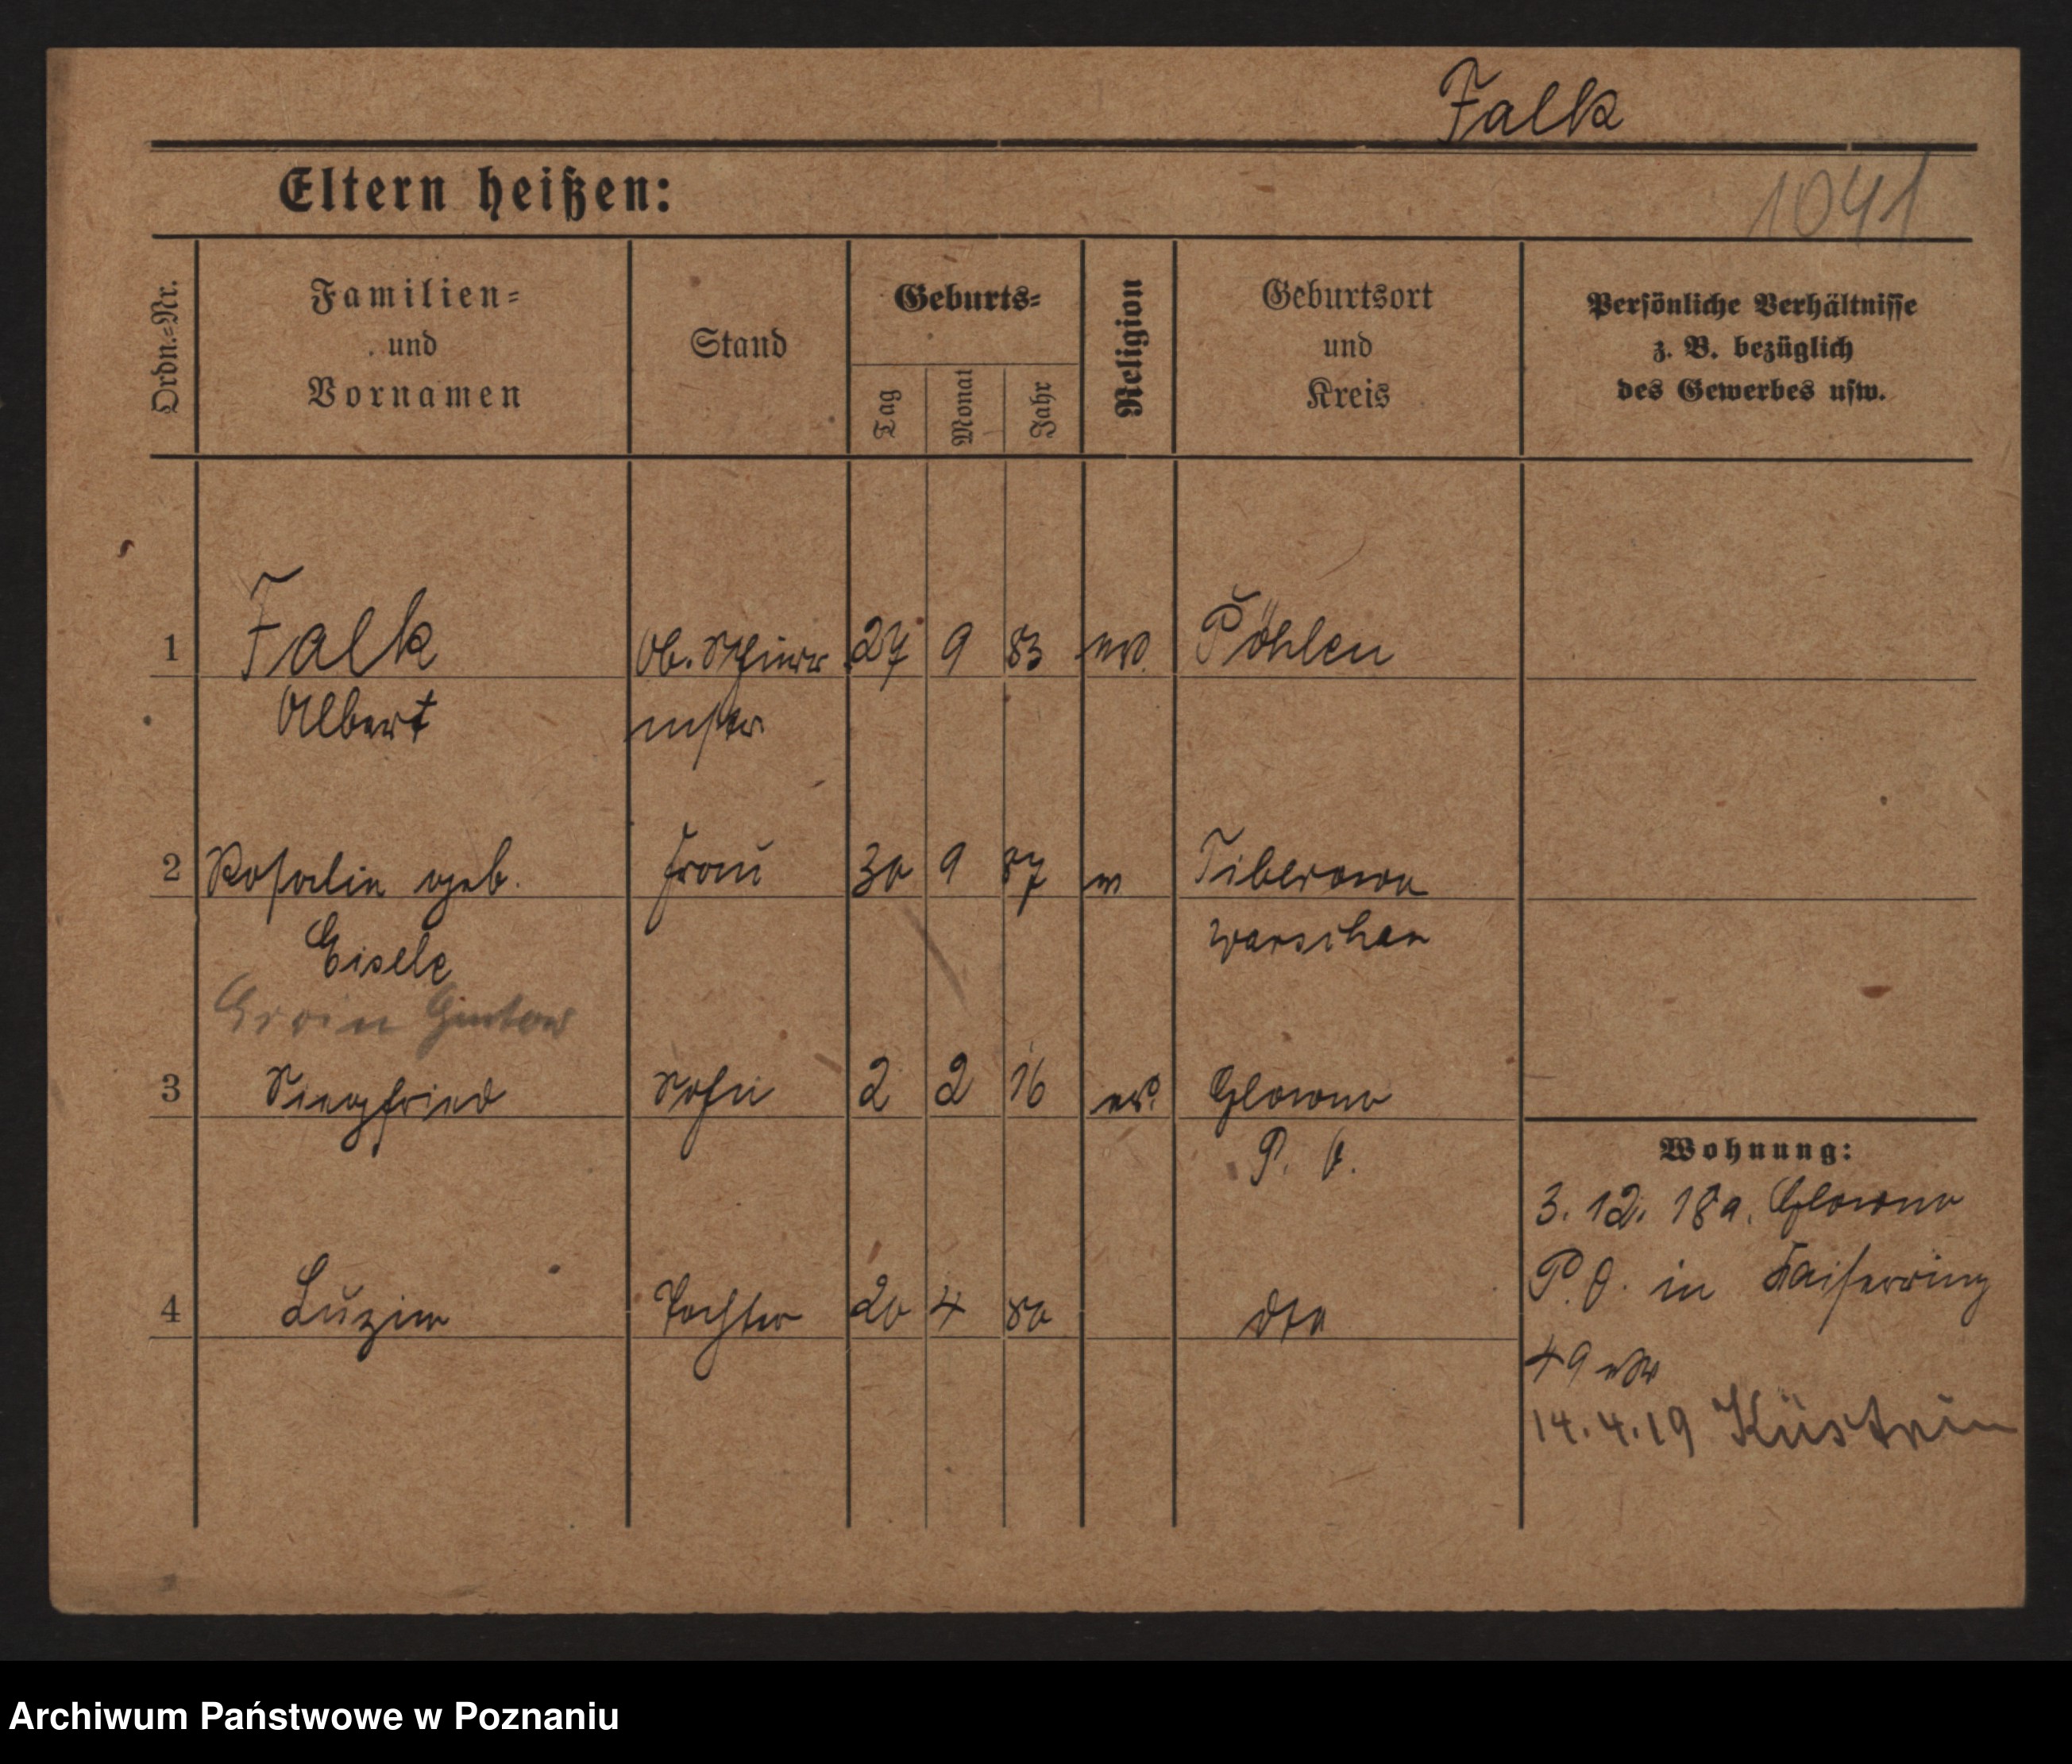 Falk
Eltern heißen:
1041
Ordn.-Nr.
Familien-
und
Vornamen
Stand
Geburts-
Tag
Monat
Jahr
Religion
Geburtsort
und
Kreis
Persönliche Verhältnisse
z. B. bezüglich
des Gewerbes usw.
1 Falk Ob. Schirr 27 9 83 Pöhlen
Albert mstr.
2 Rosalie geb. Frau 30 9 87 Tiberowa
Eisele Warschau
Erwin Gustav
3 Siegfried Sohn 2 2 16 Glowno
P. O.
Wohnung:
3. 12. 18 a. Glowno
P. O. in Kaiserring
4 Luzie Tochter 20 4 dto
49
14.4.19 Küstrin
Archiwum Państwowe w Poznaniu